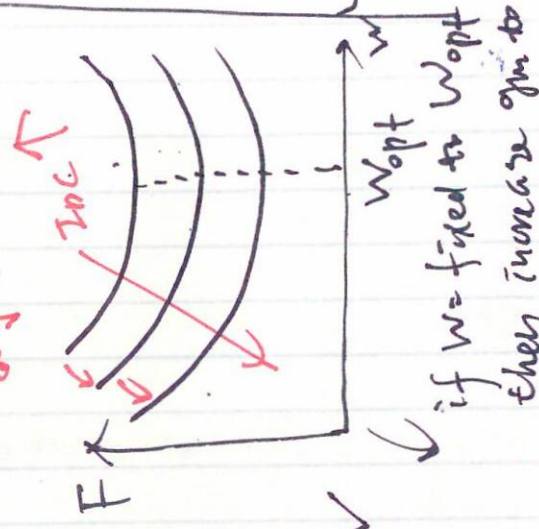 I_DC ↑
F
W
W_opt
if W = fixed to W_opt
then increase gm to